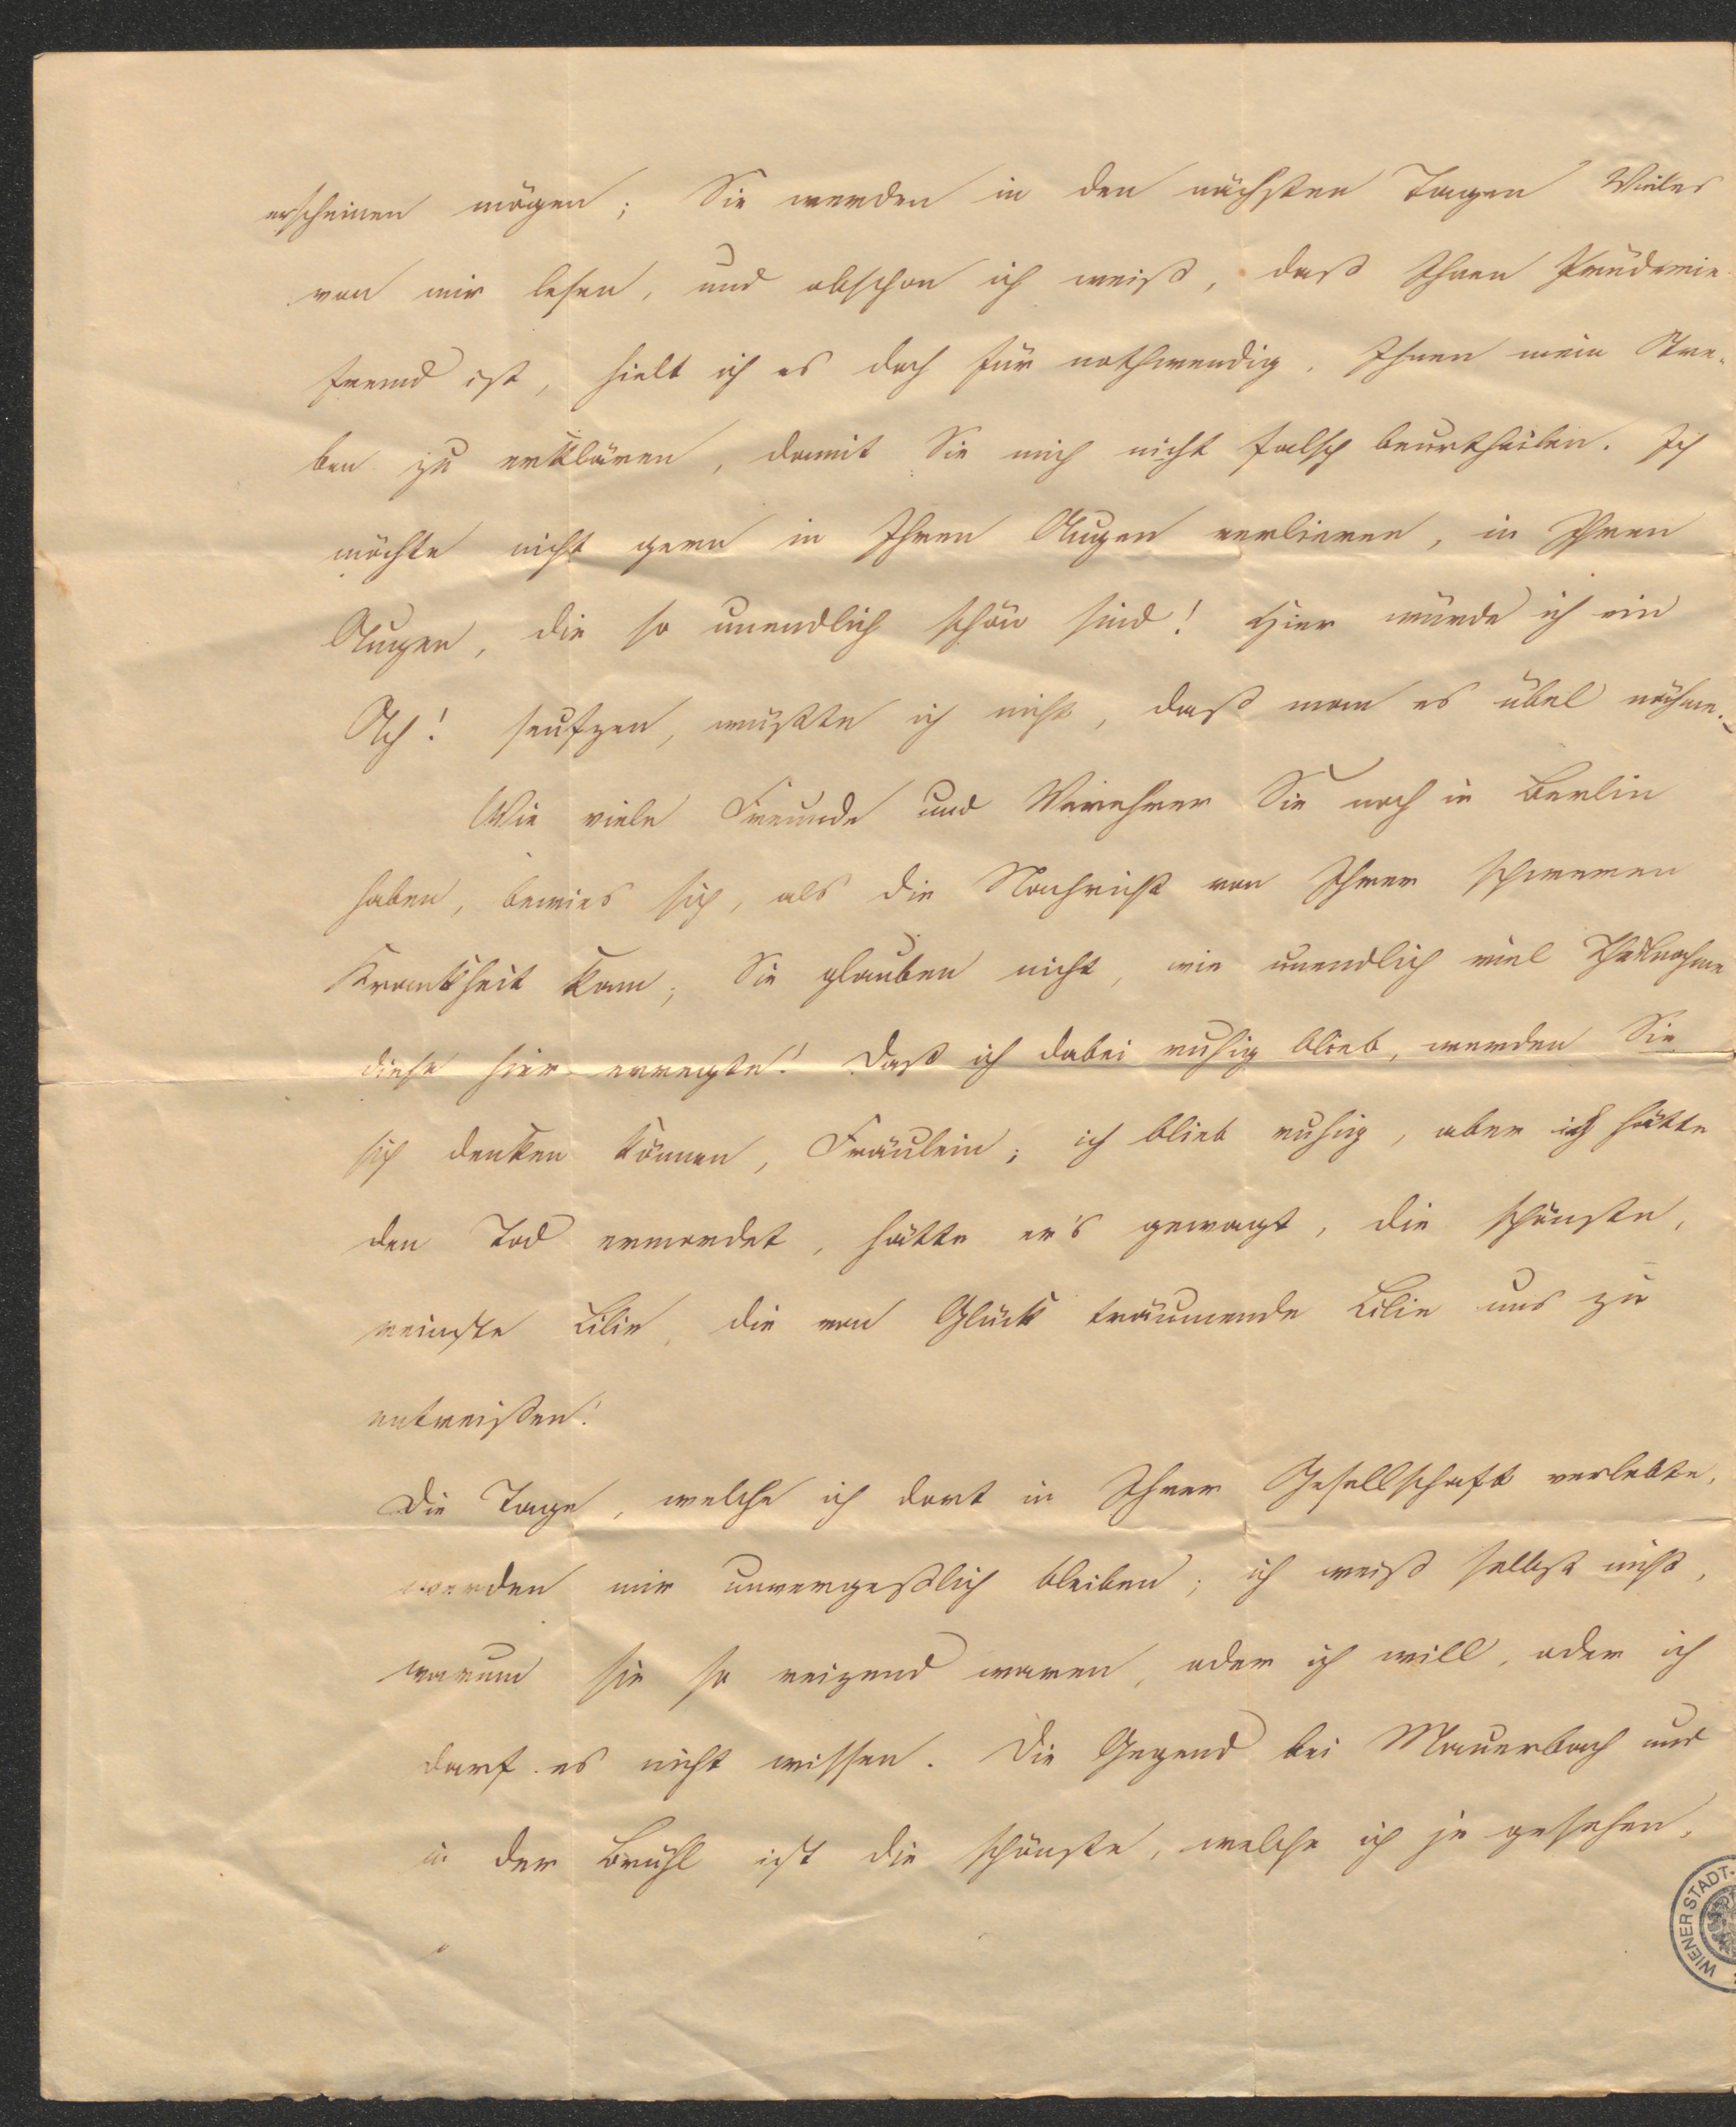 erscheinen mögen; Sie werden in den nächsten Tagen Vieles
von mir lesen, und obschon ich weiß, daß Ihnen Prüderie
fremd ist, hielt ich es doch für nothwendig, Ihnen mein Stre-
ben zu erklären, damit Sie mich nicht falsch beurtheilen. Ich
möchte nicht gern in Ihren Augen verlieren, in Ihren
Augen, die so unendlich schön sind! Hier würde ich ein
Ach! seufzen, wüßte ich nicht, daß man es übel nähme.
Wie viele Freunde und Verehrer Sie noch in Berlin
haben, bewies sich, als die Nachricht von Ihrer schweren
Krankheit kam; Sie glauben nicht, wie unendlich viel Theilnahme
diese hier erregte! Daß ich dabei ruhig blieb, werden Sie
sich denken können, Fräulein; ich blieb ruhig, aber ich hätte
den Tod ermordet, hätte er's gewagt, die schönste,
reinste Lilie, die von Glück träumende Lilie uns zu
entreißen!
Die Tage, welche ich dort in Ihrer Gesellschaft verlebte,
werden mir unvergeßlich bleiben; ich weiß selbst nicht,
warum sie so reizend waren, oder ich will, oder ich
darf es nicht wissen. Die Gegend bei Mauerbach und
in der Brühl ist die schönste, welche ich je gesehen,
WIENER STADT-